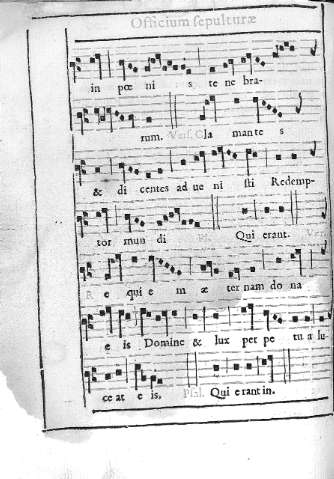 Officium sepulturæ
in pœ ni s te ne bra-
rum. Vers. Cla mante s
& di centes ad ue ni sti Redemp-
tor mun di Qui erant. Vers.
R e qui e m æ ter nam do na
e is Domine & lux per pe tu a lu-
ce at e is. Psal. Qui e rant in.